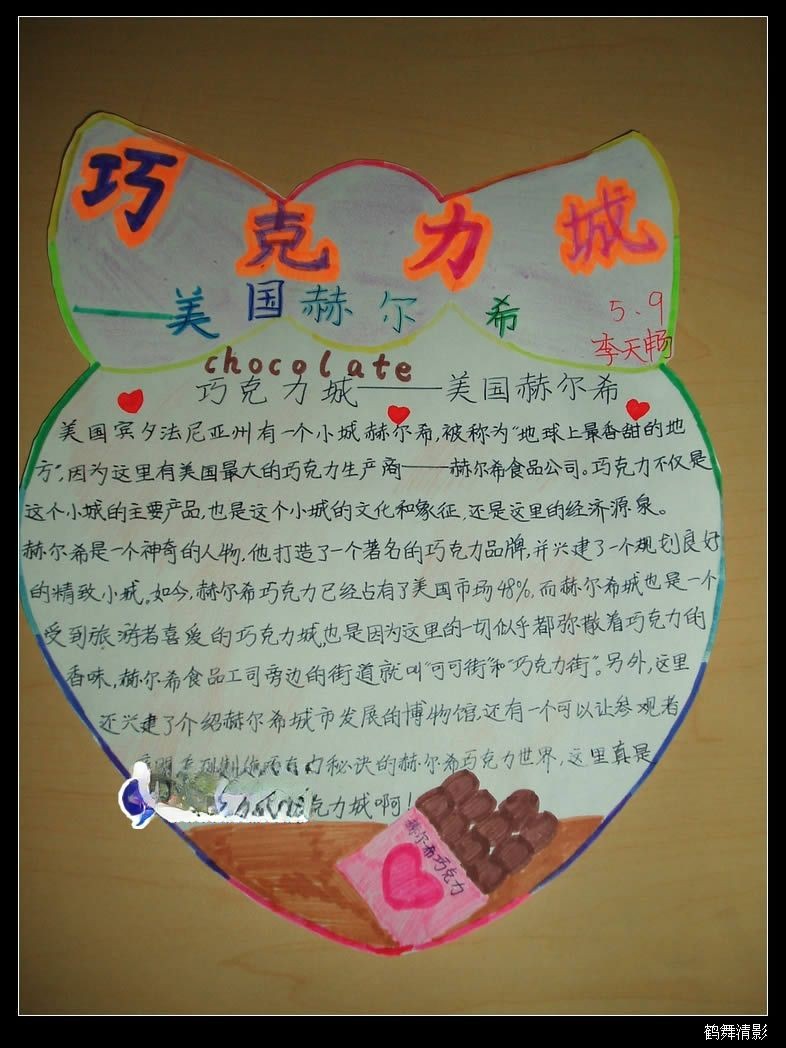 巧克力城
——美国赫尔希
5.9
李天畅
chocolate
巧克力城——美国赫尔希
美国宾夕法尼亚州有一个小城赫尔希,被称为“地球上最香甜的地
方”,因为这里有美国最大的巧克力生产商——赫尔希食品公司。巧克力不仅是
这个小城的主要产品,也是这个小城的文化和象征,还是这里的经济源泉。
赫尔希是一个神奇的人物,他打造了一个著名的巧克力品牌,并兴建了一个规划良好
的精致小城。如今,赫尔希巧克力已经占有了美国市场48%,而赫尔希城也是一个
受到旅游者喜爱的巧克力城,也是因为这里的一切似乎都弥散着巧克力的
香味,赫尔希食品工司旁边的街道就叫“可可街”和“巧克力街”。另外,这里
还兴建了介绍赫尔希城市发展的博物馆,还有一个可以让参观者
秘诀的赫尔希巧克力世界,这里真是
克力城啊!
赫尔希巧克力
鹤舞清影